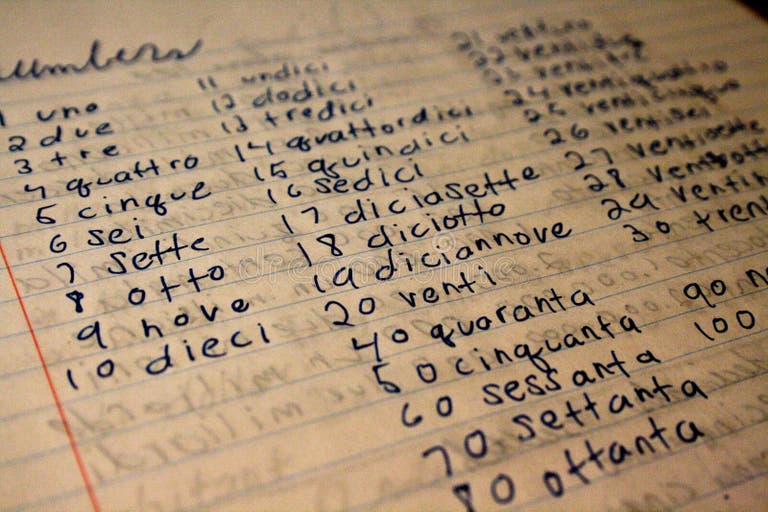 numbers
1 uno
2 due
3 tre
4 quattro
5 cinque
6 sei
7 sette
8 otto
9 nove
10 dieci
11 undici
12 dodici
13 tredici
14 quattordici
15 quindici
16 sedici
17 diciasette
18 diciotto
19 diciannove
20 venti
40 quaranta
50 cinquanta
60 sessanta
70 settanta
80 ottanta
21 ventuno
22 ventidue
23 ventitre
24 ventiquattro
25 venticinque
26 ventisei
27 ventisette
28 ventiott
29 ventin
30 trent
90 n
100
dreamstime.com